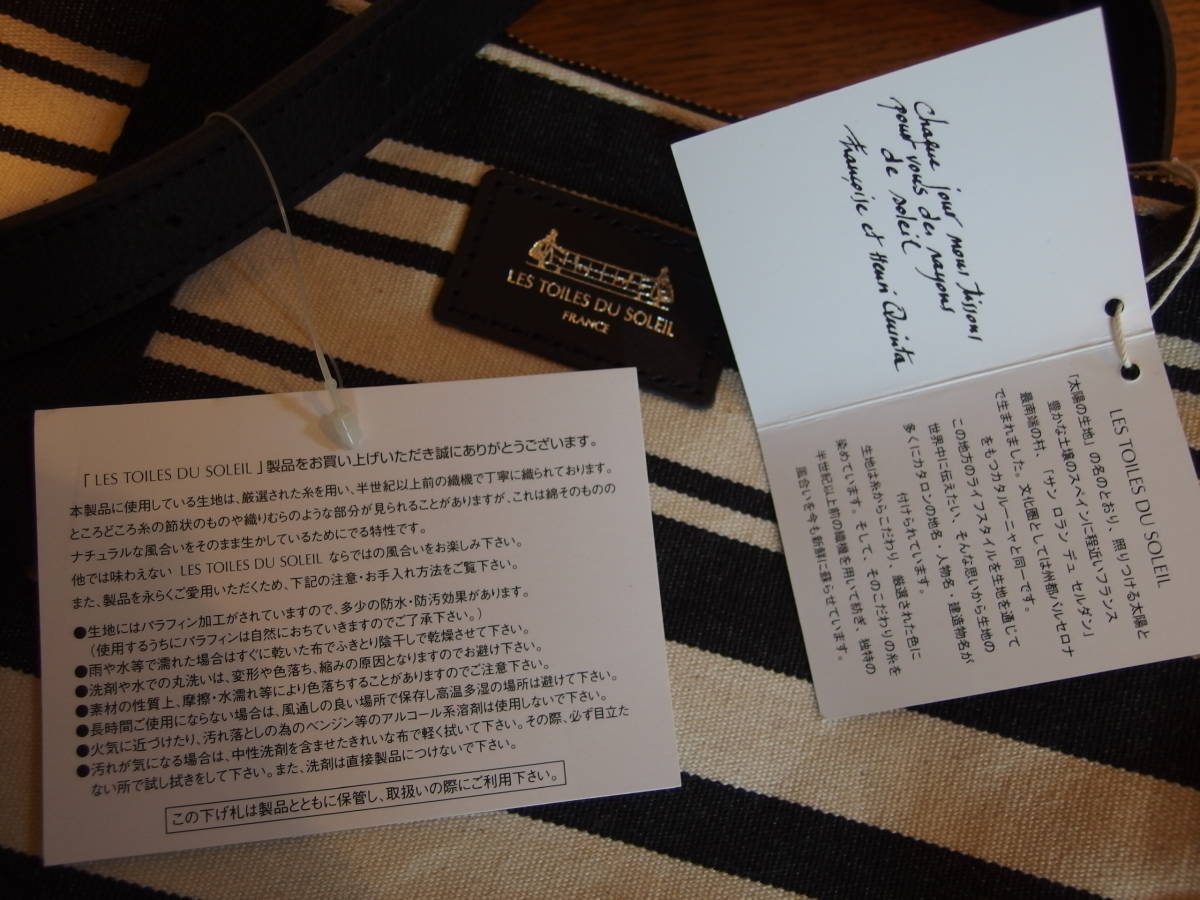 LES TOILES DU SOLEIL
FRANCE
「 LES TOILES DU SOLEIL 」製品をお買い上げいただき誠にありがとうございます。
本製品に使用している生地は、厳選された糸を用い、半世紀以上前の織機で丁寧に織られております。
ところどころ糸の節状のものや織りむらのような部分が見られることがありますが、これは綿そのものの
ナチュラルな風合いをそのまま生かしているためにでる特性です。
他では味わえない LES TOILES DU SOLEIL ならではの風合いをお楽しみ下さい。
また、製品を永らくご愛用いただくため、下記の注意・お手入れ方法をご覧下さい。
●生地にはパラフィン加工がされていますので、多少の防水・防汚効果があります。
（使用するうちにパラフィンは自然におちていきますのでご了承下さい。）
●雨や水等で濡れた場合はすぐに乾いた布でふきとり陰干しで乾燥させて下さい。
●洗剤や水での丸洗いは、変形や色落ち、縮みの原因となりますのでお避け下さい。
●素材の性質上、摩擦・水濡れ等により色落ちすることがありますのでご注意下さい。
●長時間ご使用にならない場合は、風通しの良い場所で保存し高温多湿の場所は避けて下さい。
●火気に近づけたり、汚れ落としの為のベンジン等のアルコール系溶剤は使用しないで下さい。
●汚れが気になる場合は、中性洗剤を含ませたきれいな布で軽く拭いて下さい。その際、必ず目立た
ない所で試し拭きをして下さい。また、洗剤は直接製品につけないで下さい。
この下げ札は製品とともに保管し、取扱いの際にご利用下さい。
Chaque jour nous tissons
pour vous des rayons
de soleil
Françoise et Henri Quinta
LES TOILES DU SOLEIL
「太陽の生地」の名のとおり、照りつける太陽と
豊かな土壌のスペインに程近いフランス
最南端の村、「サン ロラン デュ セルダン」
で生まれました。文化圏としては州都バルセロナ
をもつカタルーニャと同一です。
この地方のライフスタイルを生地を通じて
世界中に伝えたい、そんな思いから生地の
多くにカタロンの地名・人物名・建造物名が
付けられています。
生地は糸からこだわり、厳選された色に
染めています。そして、そのこだわりの糸を
半世紀以上前の織機を用いて紡ぎ、独特の
風合いを今も新鮮に蘇らせています。